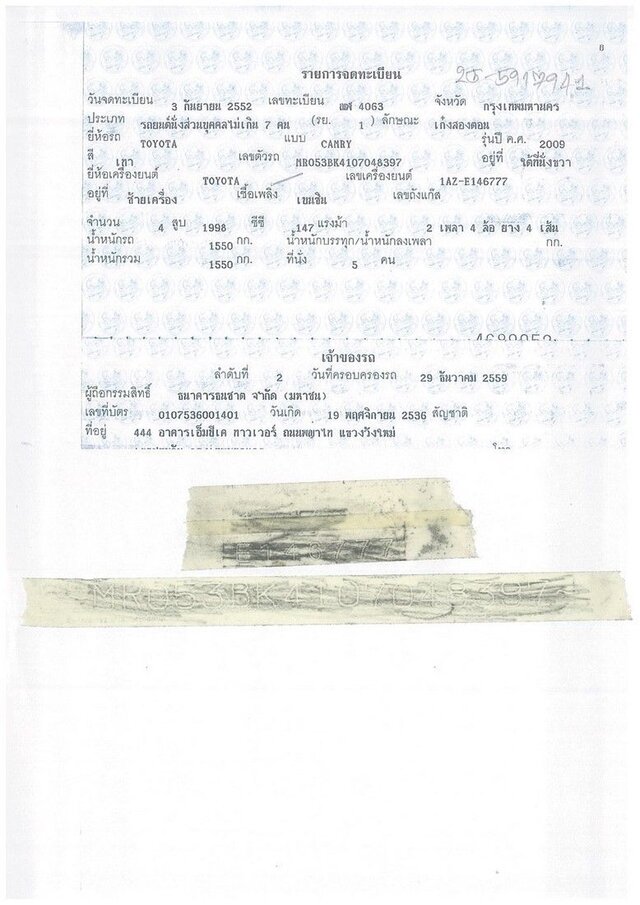 6
รายการจดทะเบียน 20-5917941
วันจดทะเบียน 3 กันยายน 2552 เลขทะเบียน 4063 จังหวัด กรุงเทพมหานคร
ประเภท รถยนต์นั่งส่วนบุคคลไม่เกิน 7 คน (รย. 1 ) ลักษณะ เก๋งสองตอน
ยี่ห้อรถ TOYOTA แบบ CAMRY รุ่นปี ค.ศ. 2009
สี เทา เลขตัวรถ MR053BK4107048397 อยู่ที่ ใต้ที่นั่งขวา
ยี่ห้อเครื่องยนต์ TOYOTA เลขเครื่องยนต์ 1AZ-E146777
อยู่ที่ ซ้ายเครื่อง เชื้อเพลิง เบนซิน เลขถังแก๊ส
จำนวน 4 สูบ 1998 ซีซี 147 แรงม้า 2 เพลา 4 ล้อ ยาง 4 เส้น
น้ำหนักรถ 1550 กก. น้ำหนักบรรทุก/น้ำหนักลงเพลา กก.
น้ำหนักรวม 1550 กก. ที่นั่ง 5 คน
เจ้าของรถ
ลำดับที่ 2 วันที่ครอบครองรถ 29 ธันวาคม 2559
ผู้ถือกรรมสิทธิ์ ธนาคารธนชาต จำกัด (มหาชน)
เลขที่บัตร 0107536001401 วันเกิด 19 พฤศจิกายน 2536 สัญชาติ
ที่อยู่ 444 อาคารเอ็มบีเค ทาวเวอร์ ถนนพญาไท แขวงวังใหม่
E146777
MR053BK4107048397